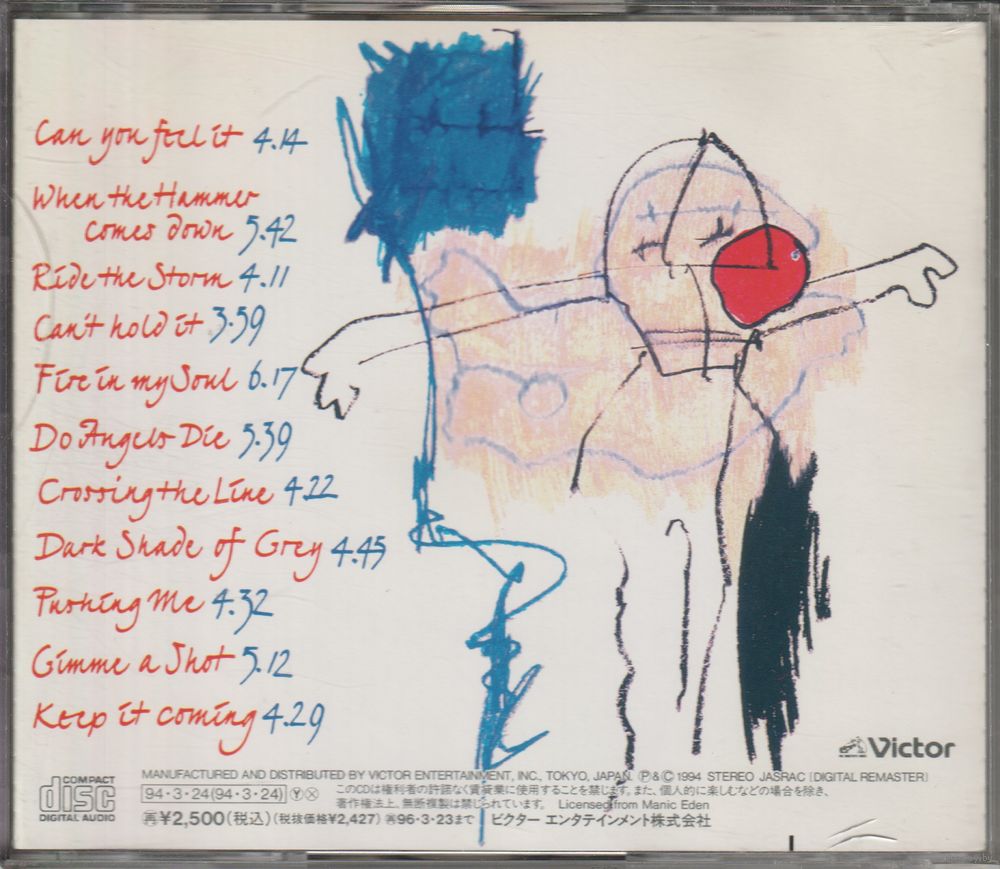 Can you feel it 4.14
When the Hammer
comes down 5.42
Ride the Storm 4.11
Can't hold it 3.59
Fire in my Soul 6.17
Do Angels Die 5.39
Crossing the Line 4.22
Dark Shade of Grey 4.45
Pushing Me 4.32
Gimme a Shot 5.12
Keep it coming 4.29
Victor
COMPACT
disc
DIGITAL AUDIO
MANUFACTURED AND DISTRIBUTED BY VICTOR ENTERTAINMENT, INC., TOKYO, JAPAN. Ⓟ&Ⓒ 1994 STEREO JASRAC [DIGITAL REMASTER]
94・3・24(94・3・24) Ⓨ Ⓧ このCDは権利者の許諾なく賃貸業に使用することを禁じます。また、個人的に楽しむなどの場合を除き、
著作権法上、無断複製は禁じられています。 Licensed from Manic Eden
再¥2,500(税込)(税抜価格¥2,427) 再96・3・23まで ビクター エンタテインメント株式会社